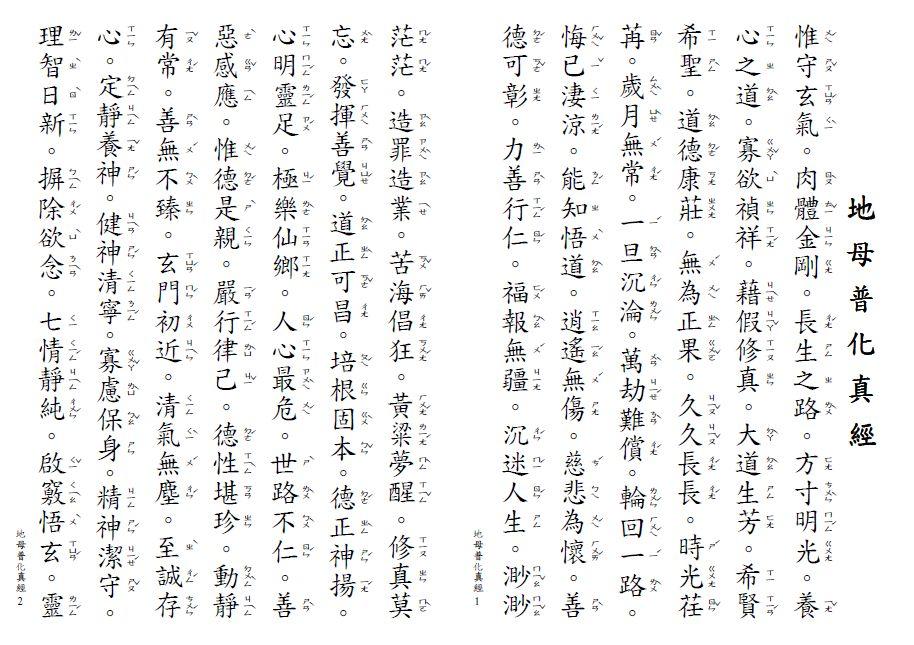 地母普化真經
惟守玄氣。肉體金剛。長生之路。方寸明光。養
心之道。寡欲禎祥。藉假修真。大道生芳。希賢
希聖。道德康莊。無為正果。久久長長。時光荏
苒。歲月無常。一旦沉淪。萬劫難償。輪回一路。
悔已淒涼。能知悟道。逍遙無傷。慈悲為懷。善
德可彰。力善行仁。福報無疆。沉迷人生。渺渺
地母普化真經 1
茫茫。造罪造業。苦海倡狂。黃粱夢醒。修真莫
忘。發揮善覺。道正可昌。培根固本。德正神揚。
心明靈足。極樂仙鄉。人心最危。世路不仁。善
惡感應。惟德是親。嚴行律己。德性堪珍。動靜
有常。善無不臻。玄門初近。清氣無塵。至誠存
心。定靜養神。健神清寧。寡慮保身。精神潔守。
理智日新。摒除欲念。七情靜純。啟竅悟玄。靈
地母普化真經 2